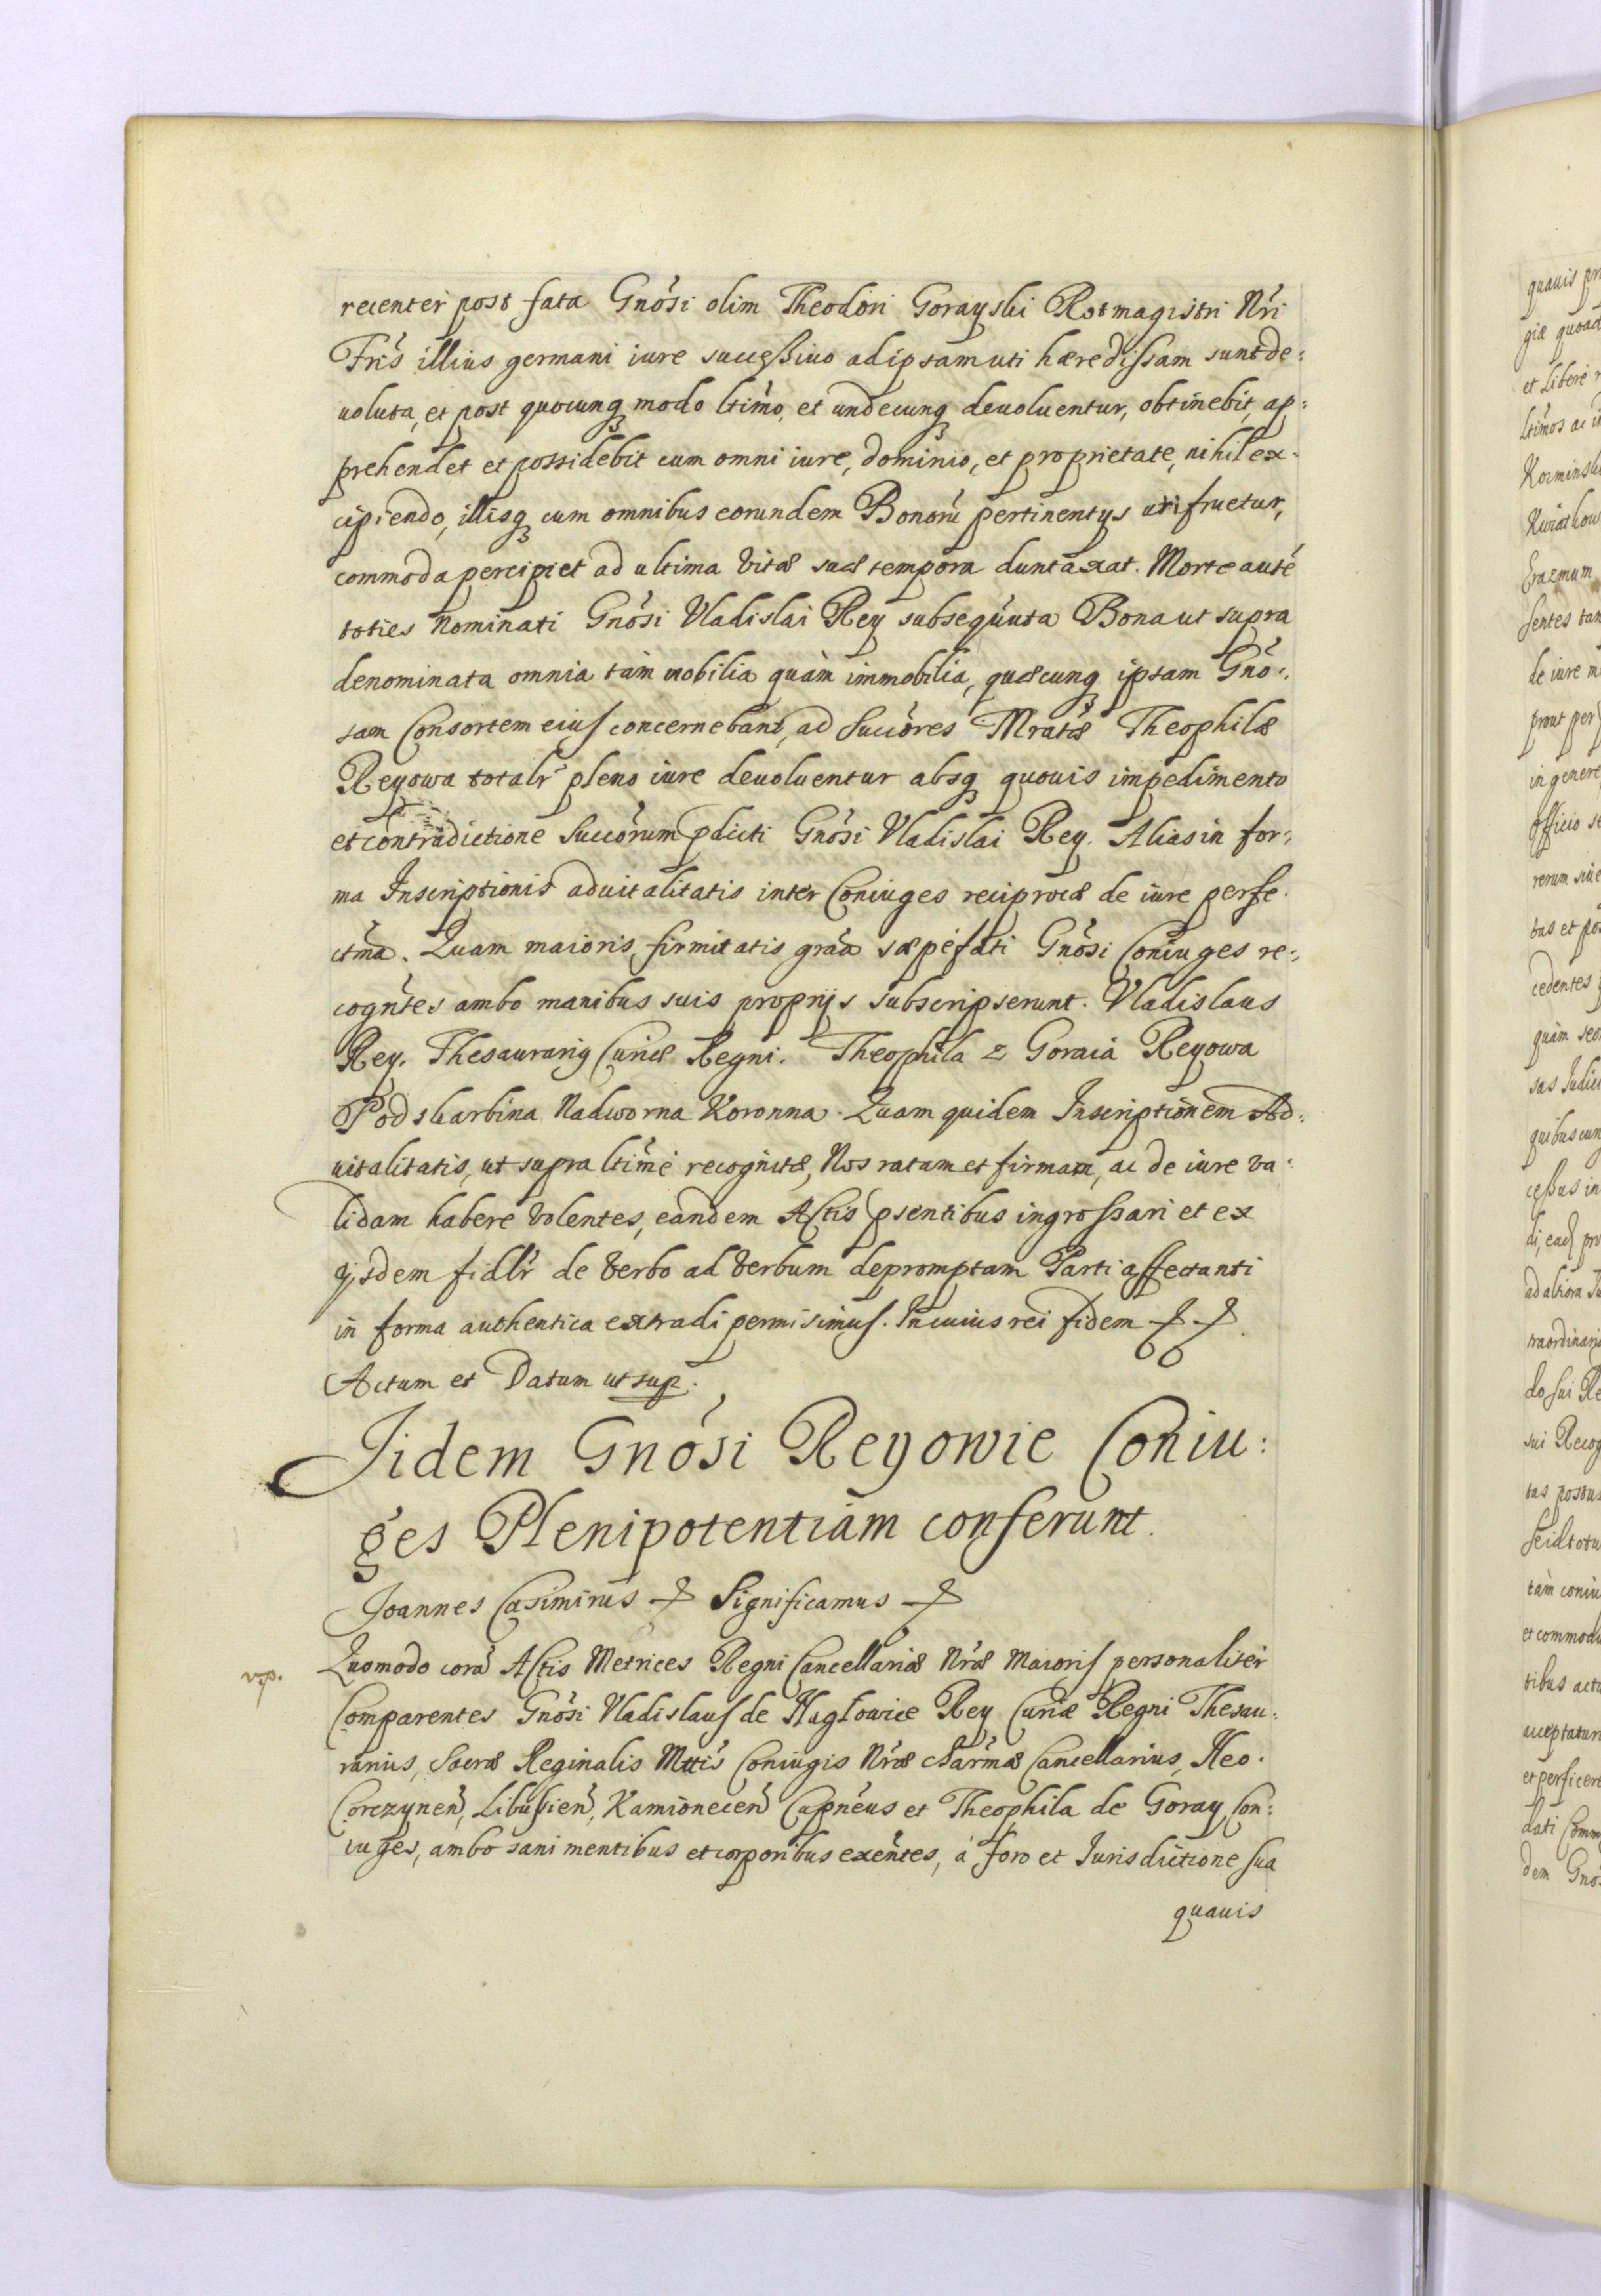 recenter post fata Gnósi olim Theodori Gorayski Rotmagistri Nri
Fris illius germani iure successiuo ad ipsam uti hæredissam sunt de:
uoluta, et post quocunq modo ltimo, et undecunq deuoluentur, obtinebit, ap:
prehendet et possidebit cum omni iure, dominio, et proprietate, nihil ex:
cipiendo, illisq cum omnibus eorundem Bonorũ pertinentys uti fruetur,
commoda percipiet ad ultima vitæ suæ tempora duntaxat. Morte autẽ
toties Nominati Gnósi Vladislai Rey subsequuta Bona ut supra
denominata omnia tàm mobilia quàm immobilia, quæcunq ipsam Gnó:
sam Consortem eius concernebant, ad Succóres Mratæ Theophilæ
Reyowa totalr pleno iure deuoluentur absq quouis impedimento
et contradictione Succórum pdicti Gnósi Vladislai Rey. Alias in for:
ma Inscriptionis aduitalitatis inter Coniuges reciprocæ de iure perfe:
ctma. Quam maioris firmitatis gráa sæpefati Gnósi Coniuges re:
cogntes ambo manibus suis proprijs subscripserunt. Vladislaus
Rey. Thesaurarig Curiæ Regni. Theophila z Goraia Reyowa
Podskarbina Nadworna Koronna. Quam quidem Inscriptionem Ad:
uitalitatis, ut supra ltime recognitæ, Nos ratam et firmam, ac de iure va:
lidam habere volentes, eandem Actis psentibus ingrossari et ex
ijsdem fidlr de verbo ad verbum depromptam Parti affectanti
in forma authentica extradi permisimus. In cuius rei fidem
Actum et Datum ut sup.
Iidem Gnósi Reyowie Coniu:
ges Plenipotentiam conferunt.
Joannes Casimirus Significamus
vp. Quomodo corã Actis Metrices Regni Cancellariæ Nræ Maioris personaliter
Comparentes Gnósi Vladislaus de Nagłowice Rey Curiæ Regni Thesau:
rarius, Sacræ Reginalis Mttis Coniugis Nræ charmæ Cancellarius, Neo:
Corczynen, Libusien, Kamionecen Capneus et Theophila de Goray Con:
iuges, ambo sani mentibus et corporibus exentes, à foro et Iurisdictione sua
quauis
quauis
et Liberè
ltimos ac
Kwiatkow
Erazmum
sentes tan
de iure
prout per
in genere
Officio
rerum siue
tas et
cedentes
quàm
quibuscun
cessus in
ad altiora
traordinarijs
do sui
tas
tàm
et commod
tibus
acceptatur
et perficere
dati Comm
dem Gnó